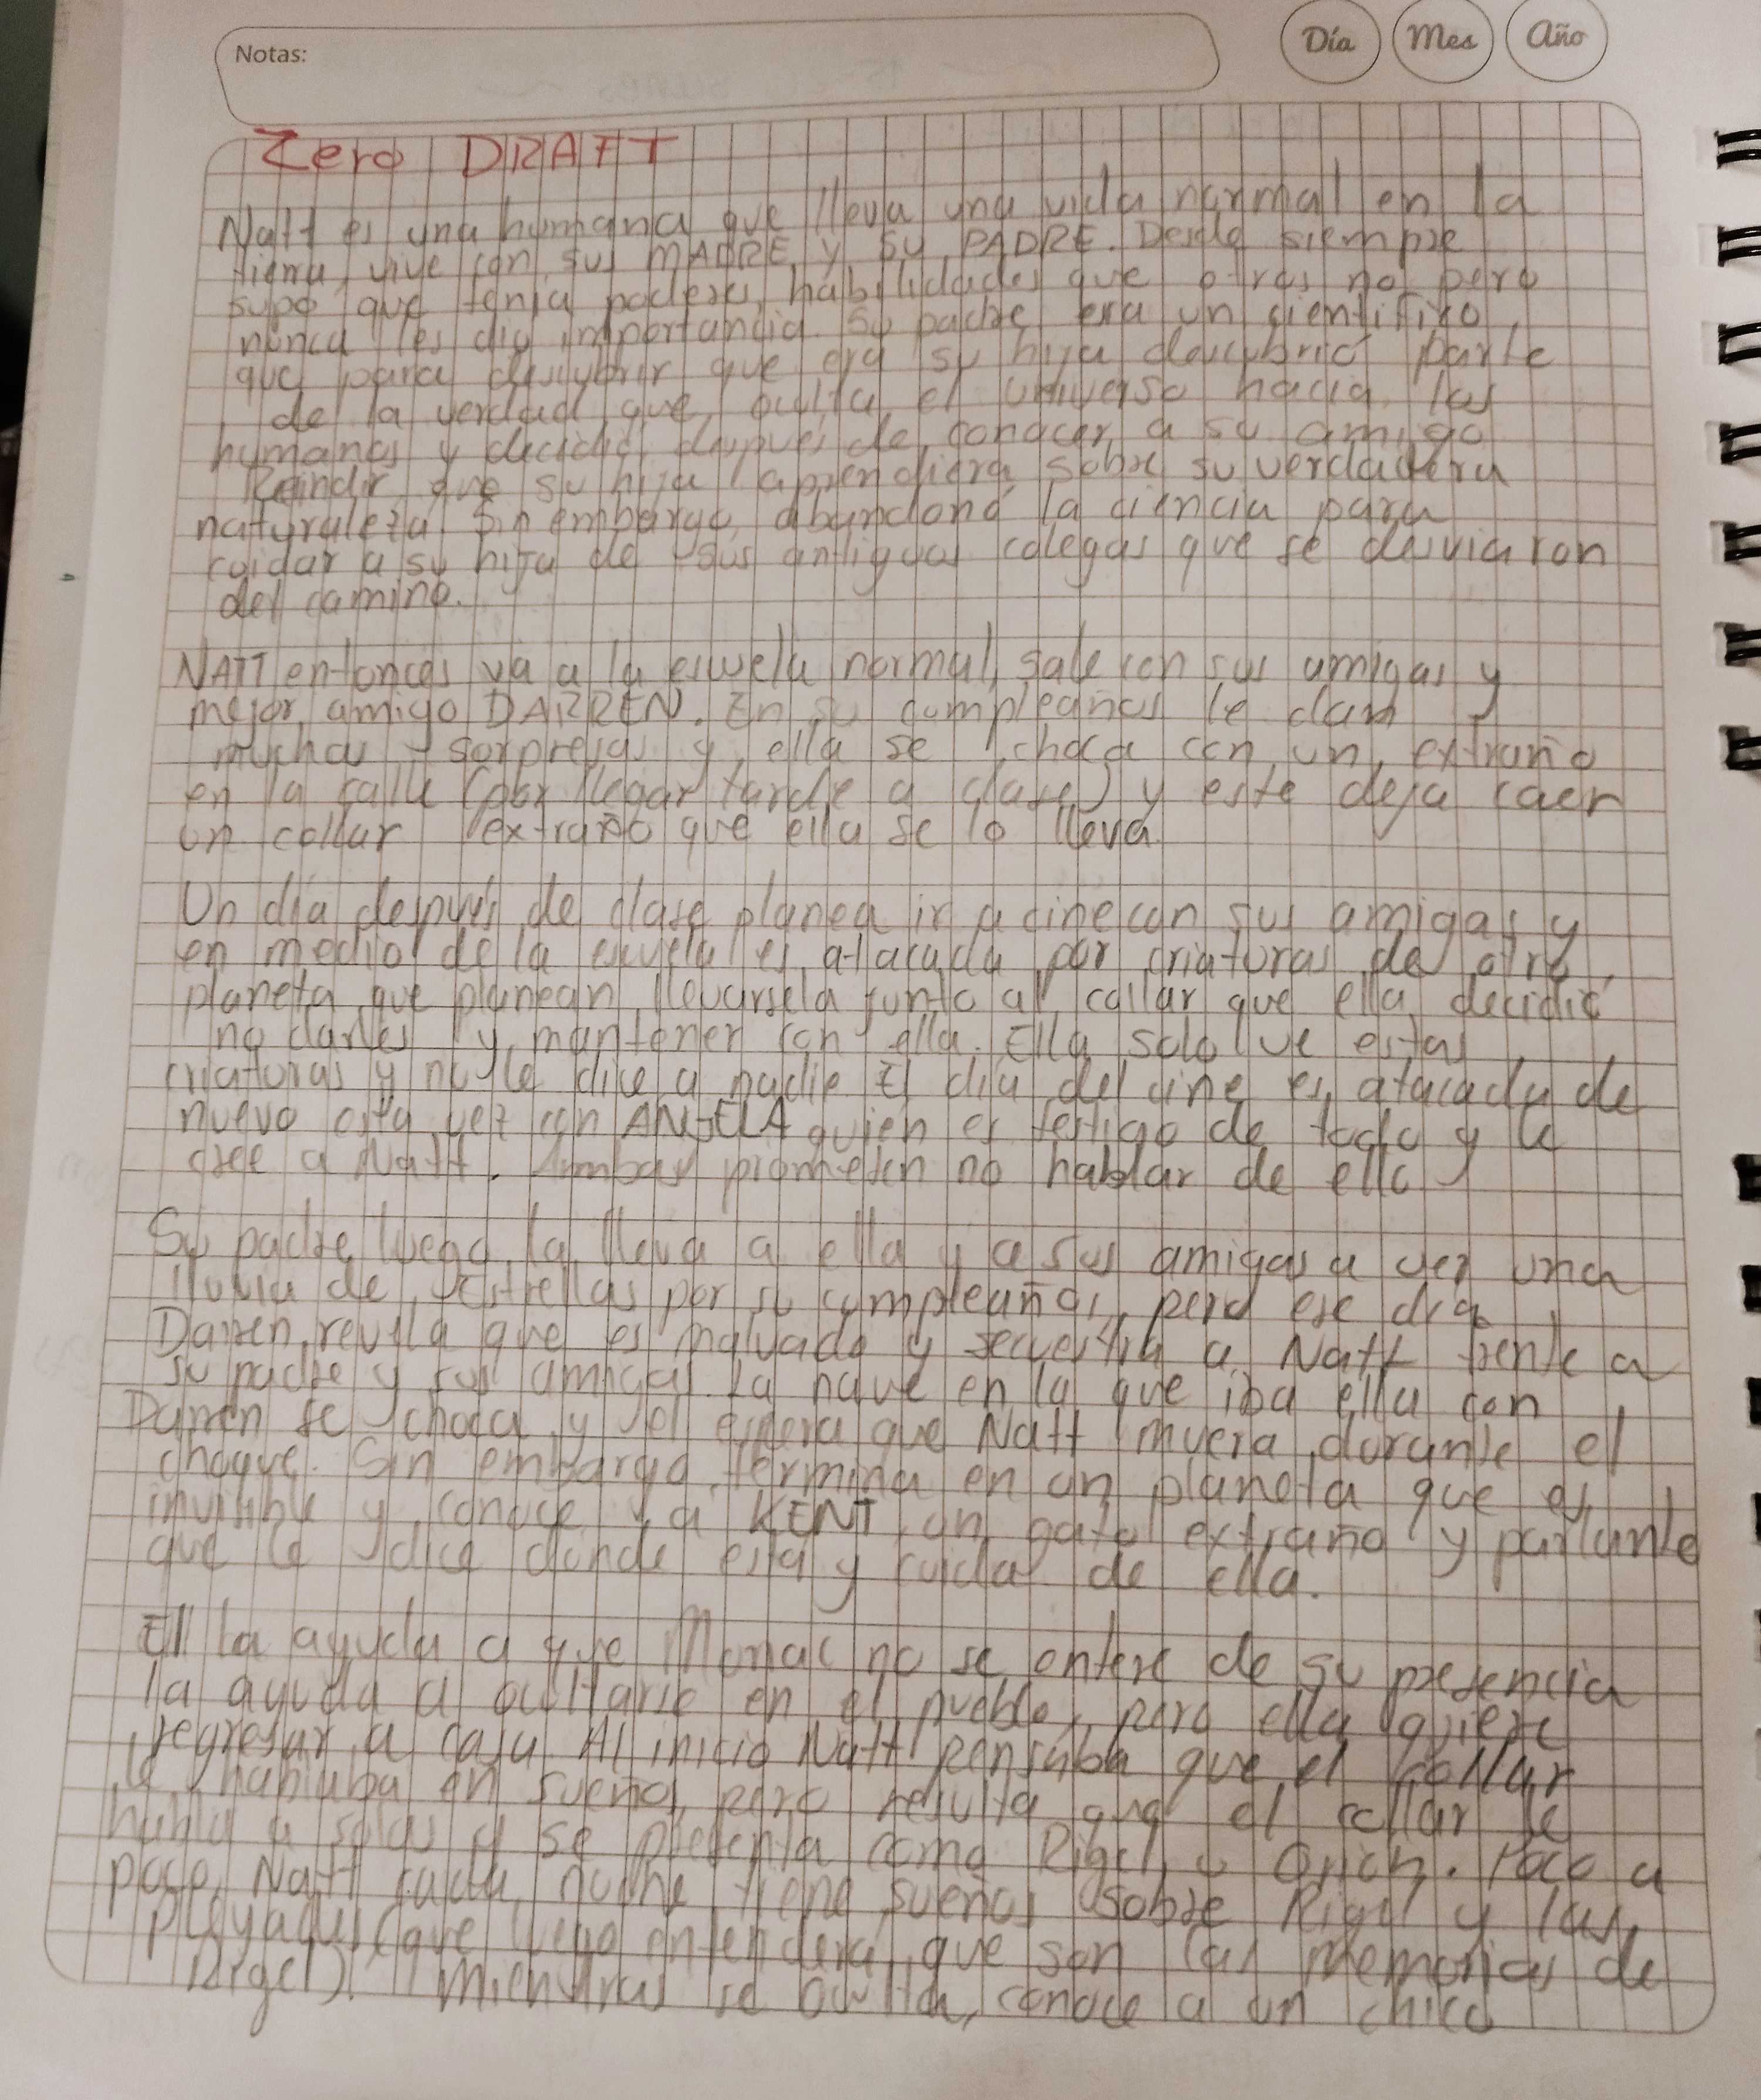 Notas:
Día Mes Año
Zero DRAFT
Natt es una humana que lleva una vida normal en la
tierra, vive con sus MADRE y SU PADRE. Desde siempre
supo que tenia poderes, habilidades que otros no pero
nunca les dio importancia. Su padre era un cientifico,
que para descubrir que era su hija descubrió parte
de la verdad que oculta el universo hacia los
humanos y decidió, después de conocer a su amigo
Reindir, que su hija aprendiera sobre su verdadera
naturaleza. Sin embargo, abandonó la ciencia para
cuidar a su hija de sus antiguos colegas que se desviaron
del camino.
NATT entonces va a la escuela normal, sale con sus amigas y
mejor amigo DARREN. En su cumpleaños le dan
muchas sorpresas y ella se choca con un extraño
en la calle (por llegar tarde a clase) y este deja caer
un collar extraño que ella se lo lleva.
Un día después de clase planea ir a cine con sus amigas y
en medio de la escuela es atacada por criaturas de otro
planeta que planean llevarsela junto al collar que ella decidió
no darles y mantener con ella. Ella solo ve estas
criaturas y no le dice a nadie El día del cine es atacada de
nuevo esta vez con ANGELA quien es testigo de todo y le
cree a Natt. Ambas prometen no hablar de ello
Su padre luego la lleva a ella y a sus amigas a ver una
lluvia de estrellas por su cumpleaños, pero ese día
Darren revela que es malvado y secuestra a Natt frente a
su padre y sus amigas. La nave en la que iba ella con
Darren se choca y el espera que Natt muera durante el
choque. Sin embargo termina en un planeta que es
invisible y conoce a KENT, un gato extraño y parlante
que le dice donde esta y cuida de ella.
El la ayuda a que Monac no se entere de su presencia
la ayuda a ocultarse en el pueblo, pero ella quiere
regresar a casa. Al inicio Natt pensaba que el collar
le hablaba en sueños, pero resulta que el collar le
habla a solas y se presenta como Rigel, u Orion. Poco a
poco, Natt cada noche tiene sueños sobre Rigel y las
pleyades (que luego entendera que son las memorias de
Rigel). Mientras se oculta, conoce a un chico